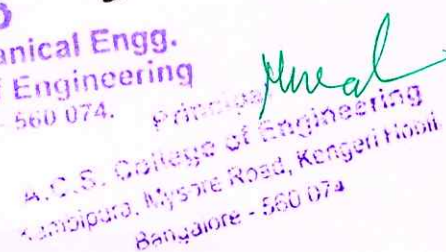 anical Engg.
f Engineering
- 560 074.
Principal
A.C.S. College of Engineering
Kambipura, Mysore Road, Kengeri Hobli
Bangalore - 560 074